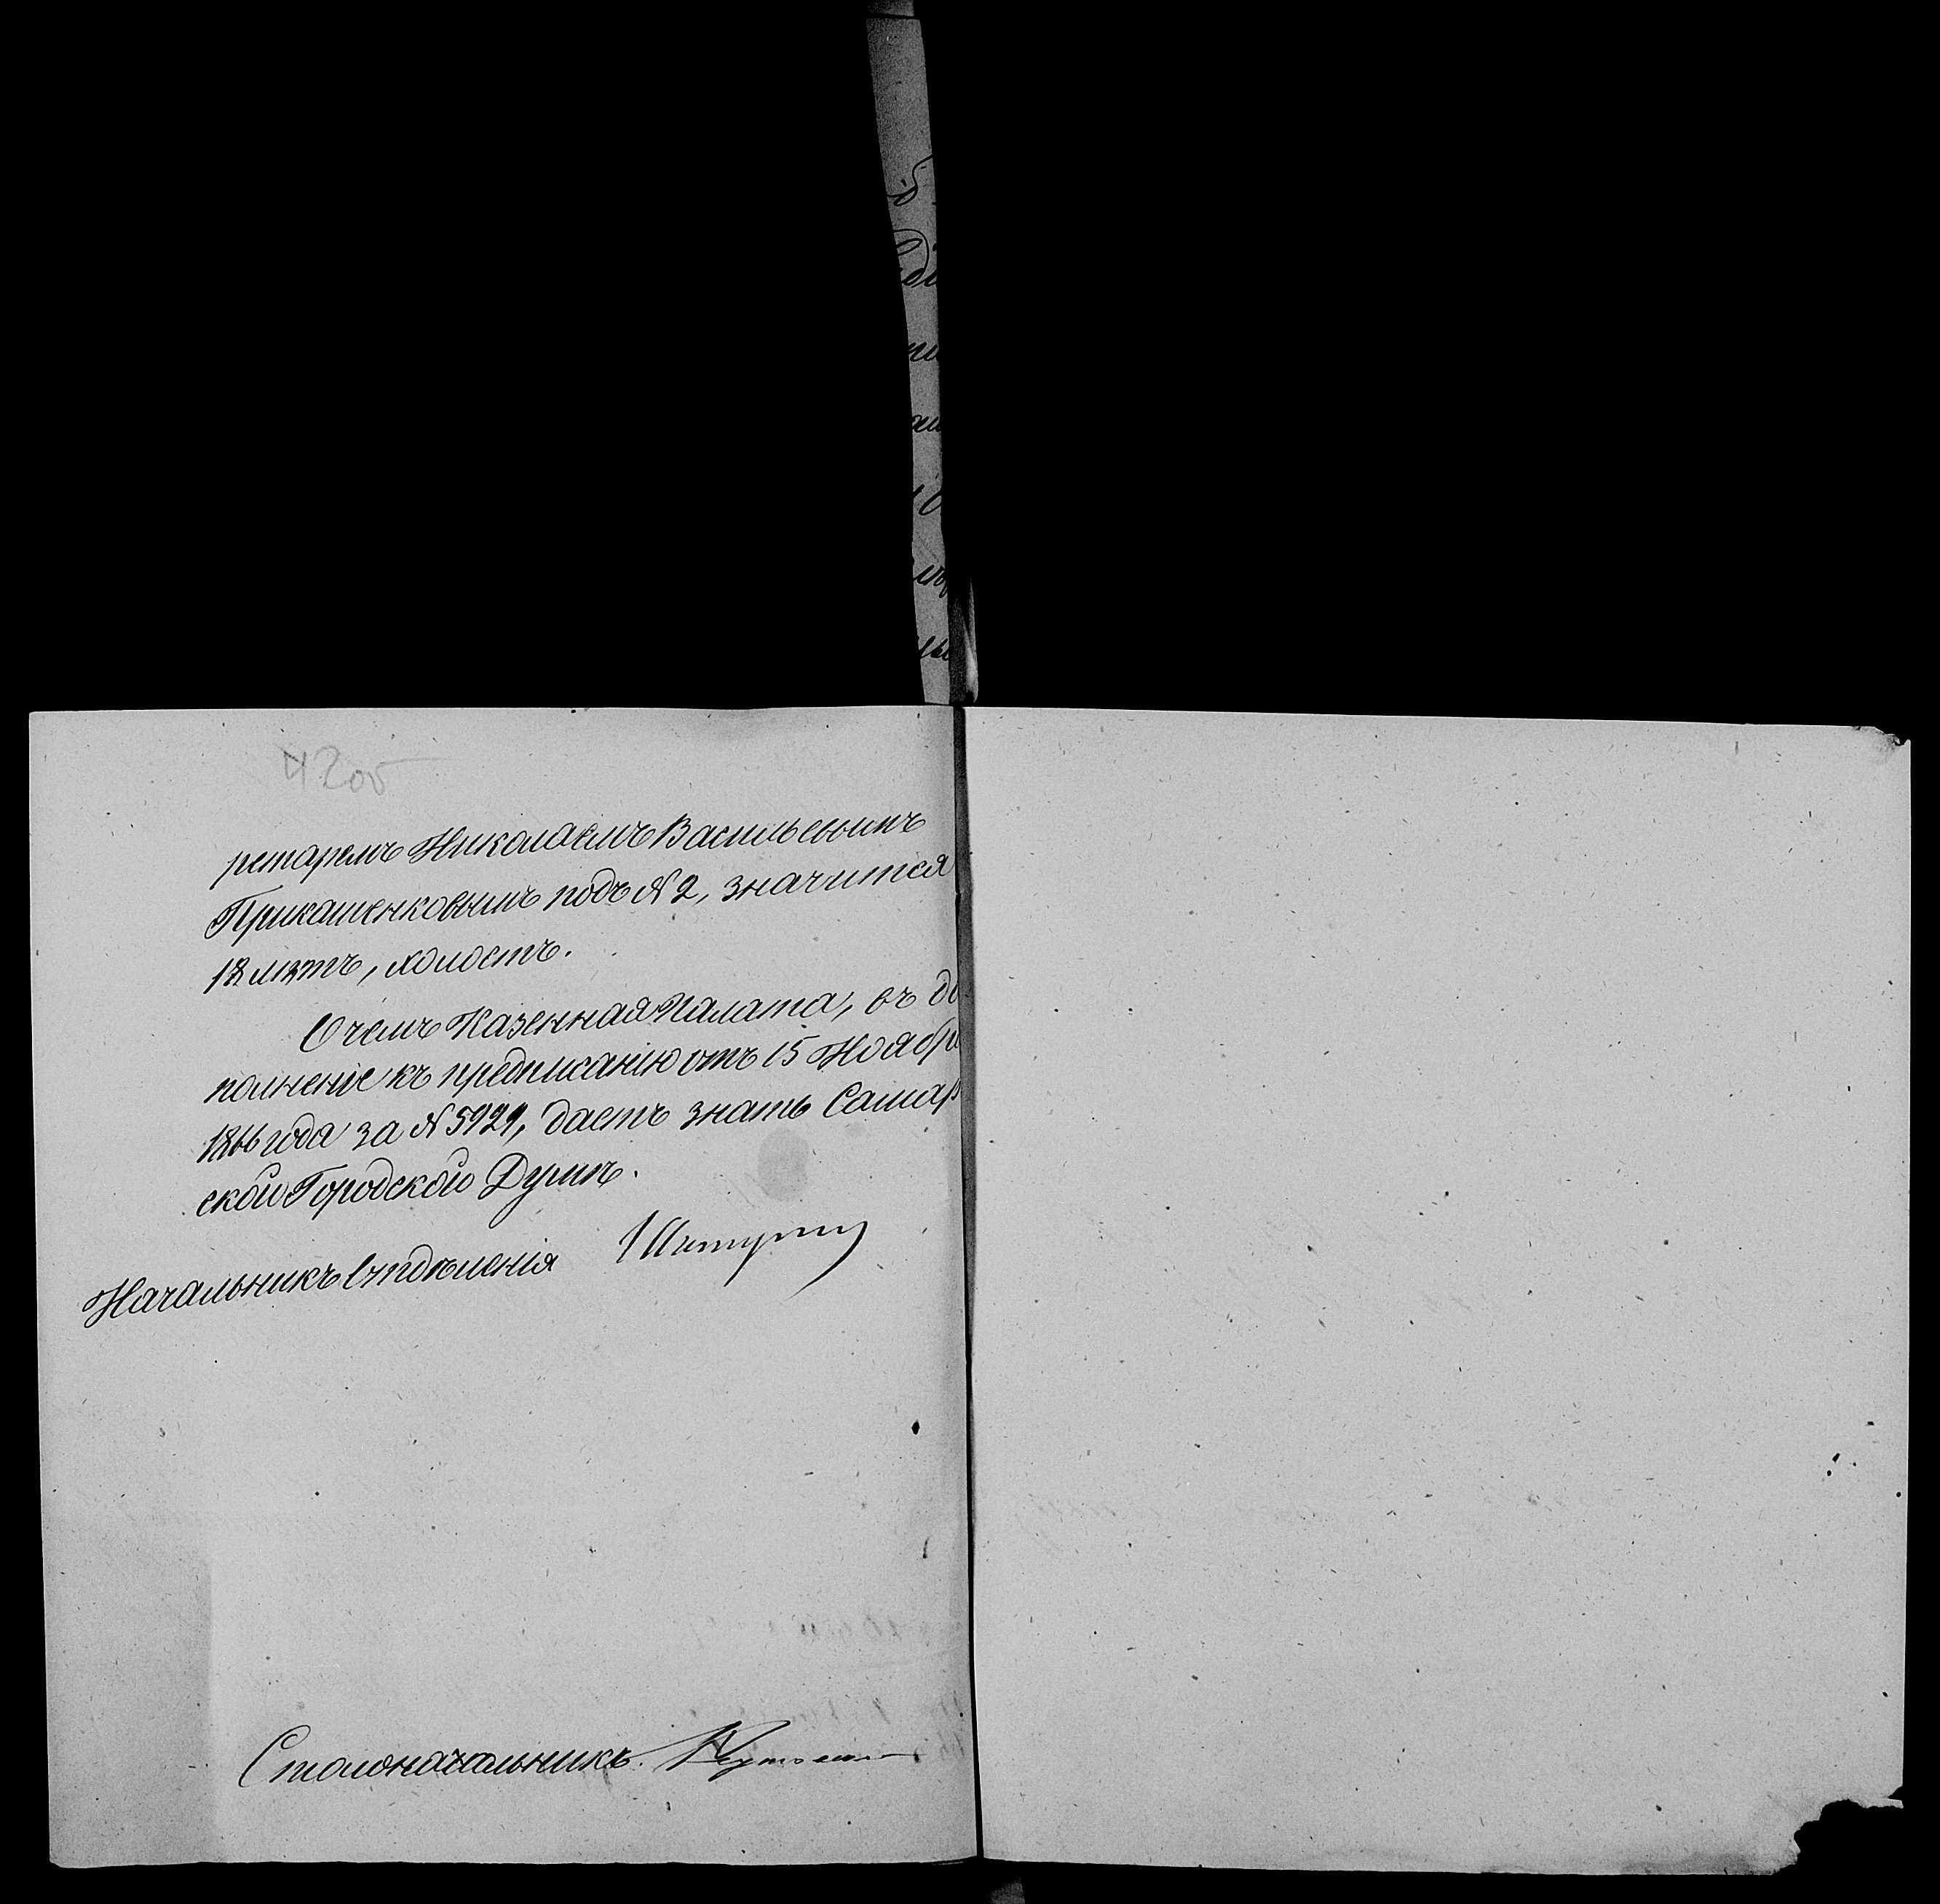 4200
ретаремъ Николаемъ Васильевымъ
Прикащенковымъ подъ № 2, значится
18 лѣтъ, холостъ.
О чемъ Казенная Палата, въ до
полненіе къ предписанію отъ 15 Ноябр
1866 года за № 5929, даетъ знать Самар
ской Городской Думѣ.
Начальникъ Отдѣленія
Столоначальникъ